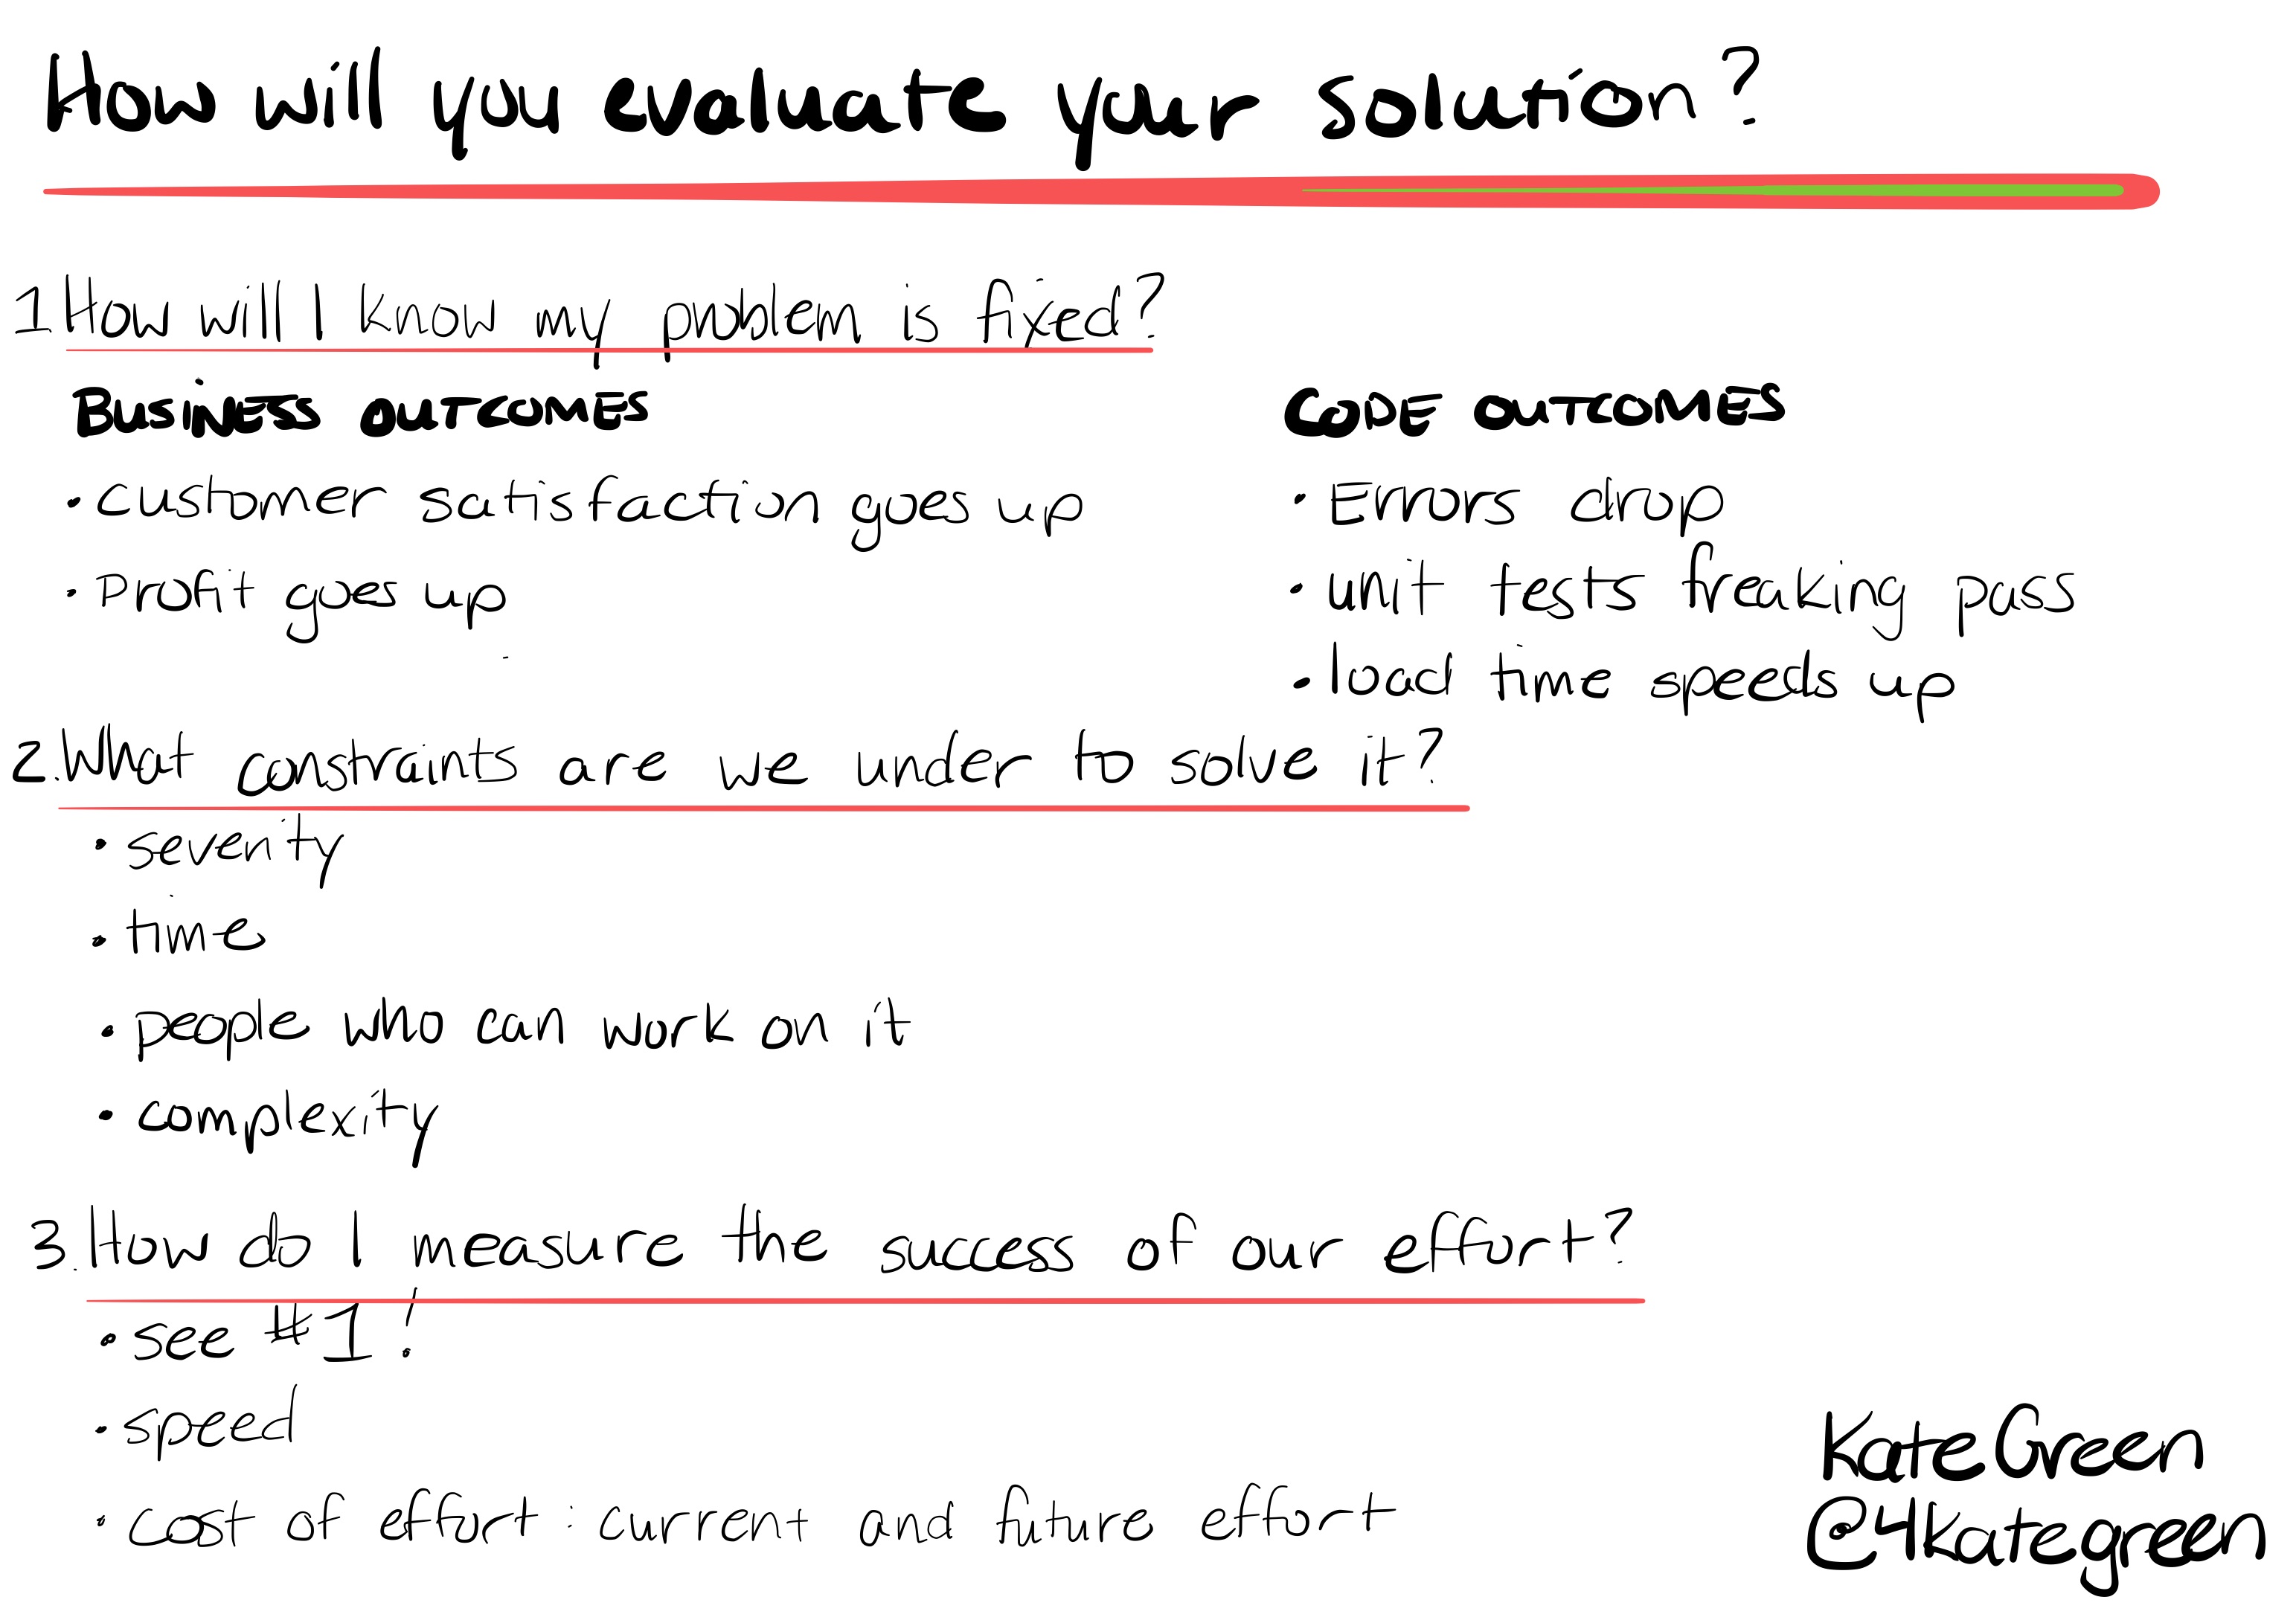 How will you evaluate your solution?
1 How will I know my problem is fixed?
BUSiNESS OUTCOMES
• customer satisfaction goes up
• Profit goes up
CODE OUTCOMES
• Errors drop
• unit tests freaking pass
• load time speeds up
2. What constraints are we under to solve it?
• severity
• time
• people who can work on it
• complexity
3. How do I measure the success of our effort?
• see #1!
• speed
• cost of effort: current and future effort
Kate Green
@4kategreen